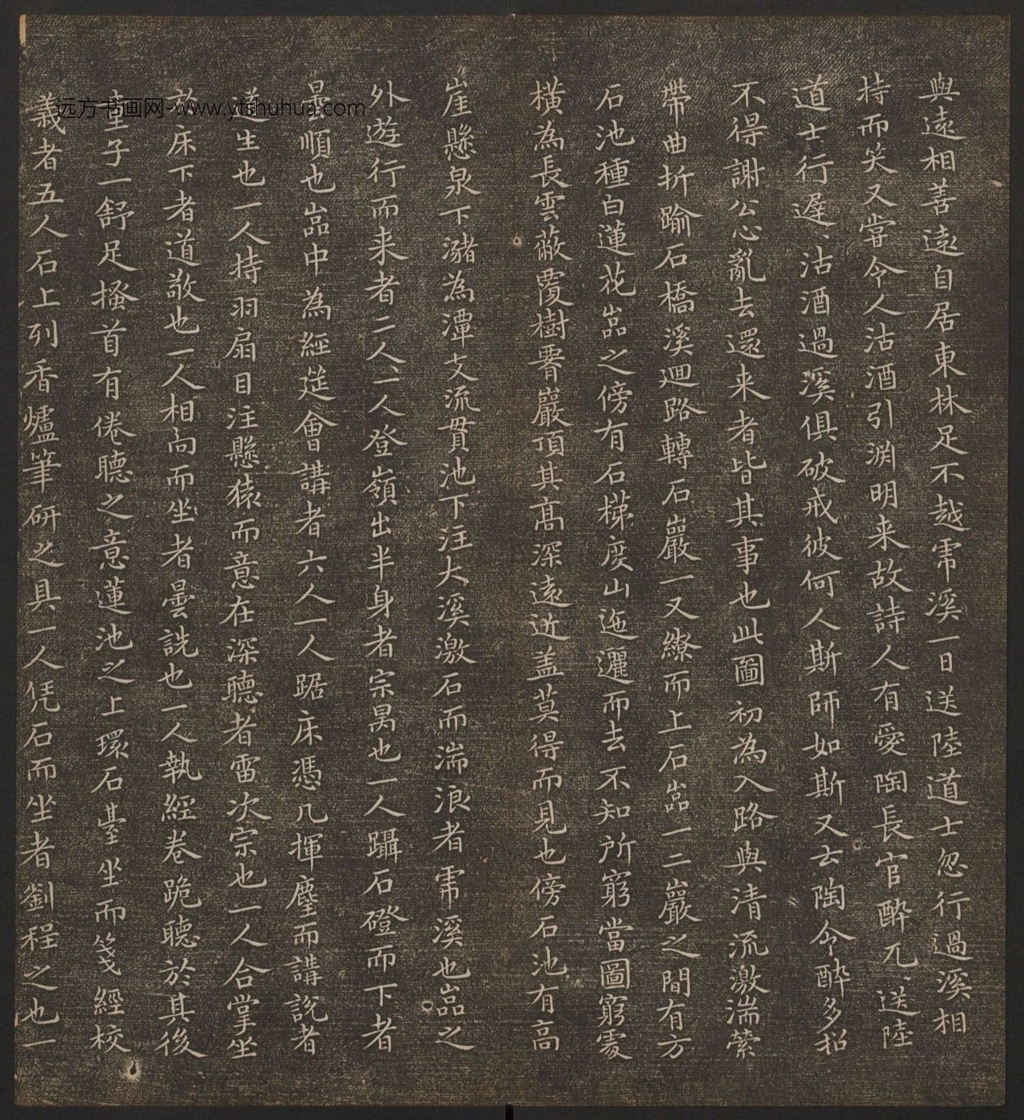 與遠相善遠自居東林足不越虎溪一日送陸道士忽行過溪相
持而笑又嘗令人沽酒引淵明来故詩人有愛陶長官醉兀送陸
道士行遲沽酒過溪俱破戒彼何人斯師如斯又云陶令醉多招
不得謝公心亂去還来者皆其事也此圖初為入路與清流激湍縈
帶曲折踰石橋溪迴路轉石巖一又繚而上石嵓一二巖之間有方
石池種白蓮花嵓之傍有石梯度山迤邐而去不知所窮當圖窮處
橫為長雲蔽覆樹霫巖頂其高深遠近盖莫得而見也傍石池有高
崖懸泉下瀦為潭支流貫池下注大溪激石而湍浪者虎溪也嵓之
外遊行而来者二人一人登嶺出半身者宗昺也一人躡石磴而下者
曇順也嵓中為經筵會講者六人一人踞床憑几揮麈而講說者
道生也一人持羽扇目注懸猿而意在深聽者雷次宗也一人合掌坐
於床下者道敬也一人相向而坐者曇詵也一人執經卷跪聽於其後
童子一舒足搔首有倦聽之意蓮池之上環石臺坐而箋經校
義者五人石上列香爐筆研之具一人凭石而坐者劉程之也一
远方书画网-www.yfshuhua.com